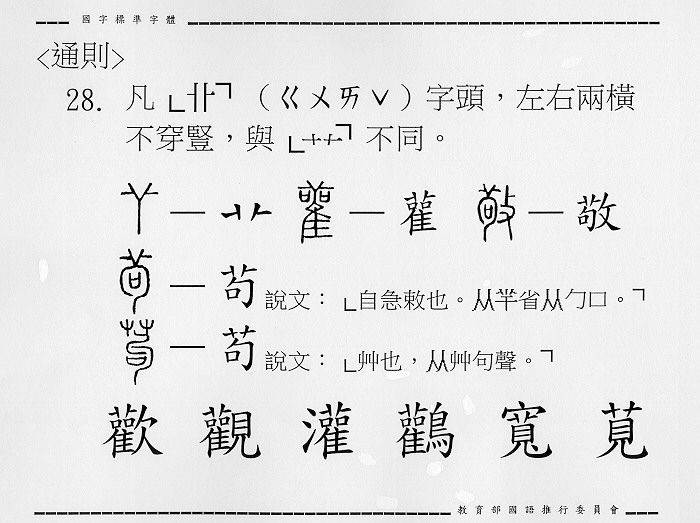 國字標準字體
<通則>
28. 凡﹂卝﹁(ㄍㄨㄞˇ)字頭,左右兩橫
不穿豎,與﹂艹﹁不同。
— 卝 — 雚 — 敬
— 茍 說文:﹂自急敕也。从𦍌省从勹口。﹁
— 苟 說文:﹂艸也,从艸句聲。﹁
歡 觀 灌 鸛 寬 莧
教育部國語推行委員會